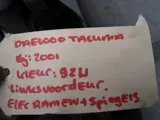 DAEWOO TACUMA
Bj: 2001
Kleur: 92U
Linksvoordeur.
Elec RAMEN + SpiegElS